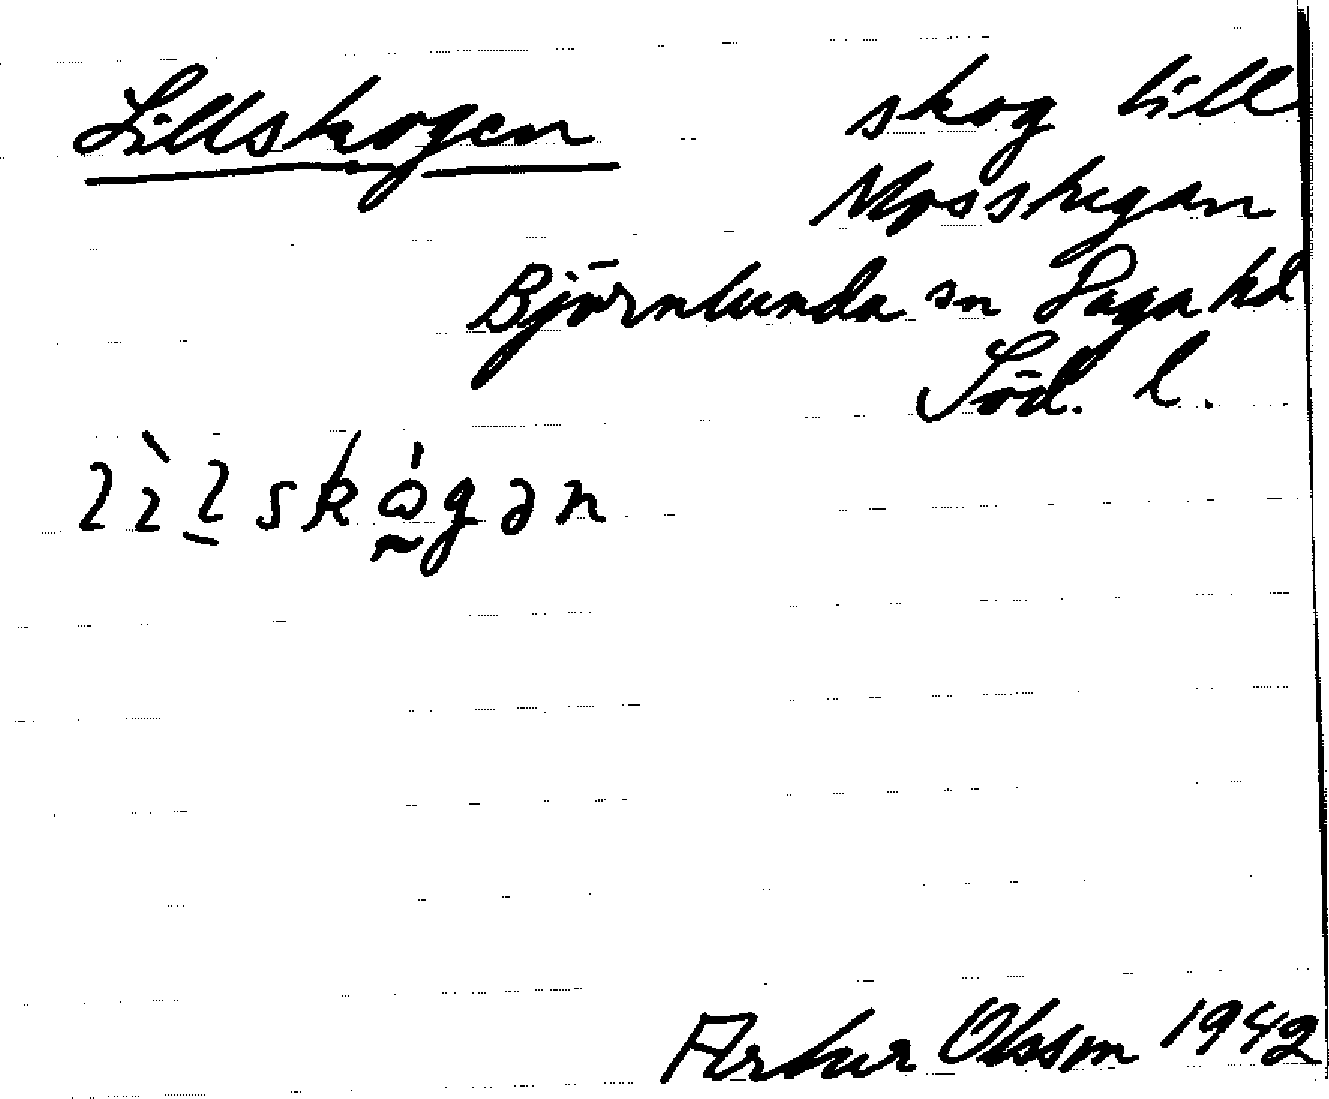 Lillskogen
skog till
Mosstugan
Björnlunda sn Daga hd
Söd. l.
Arthur Olsson 1942